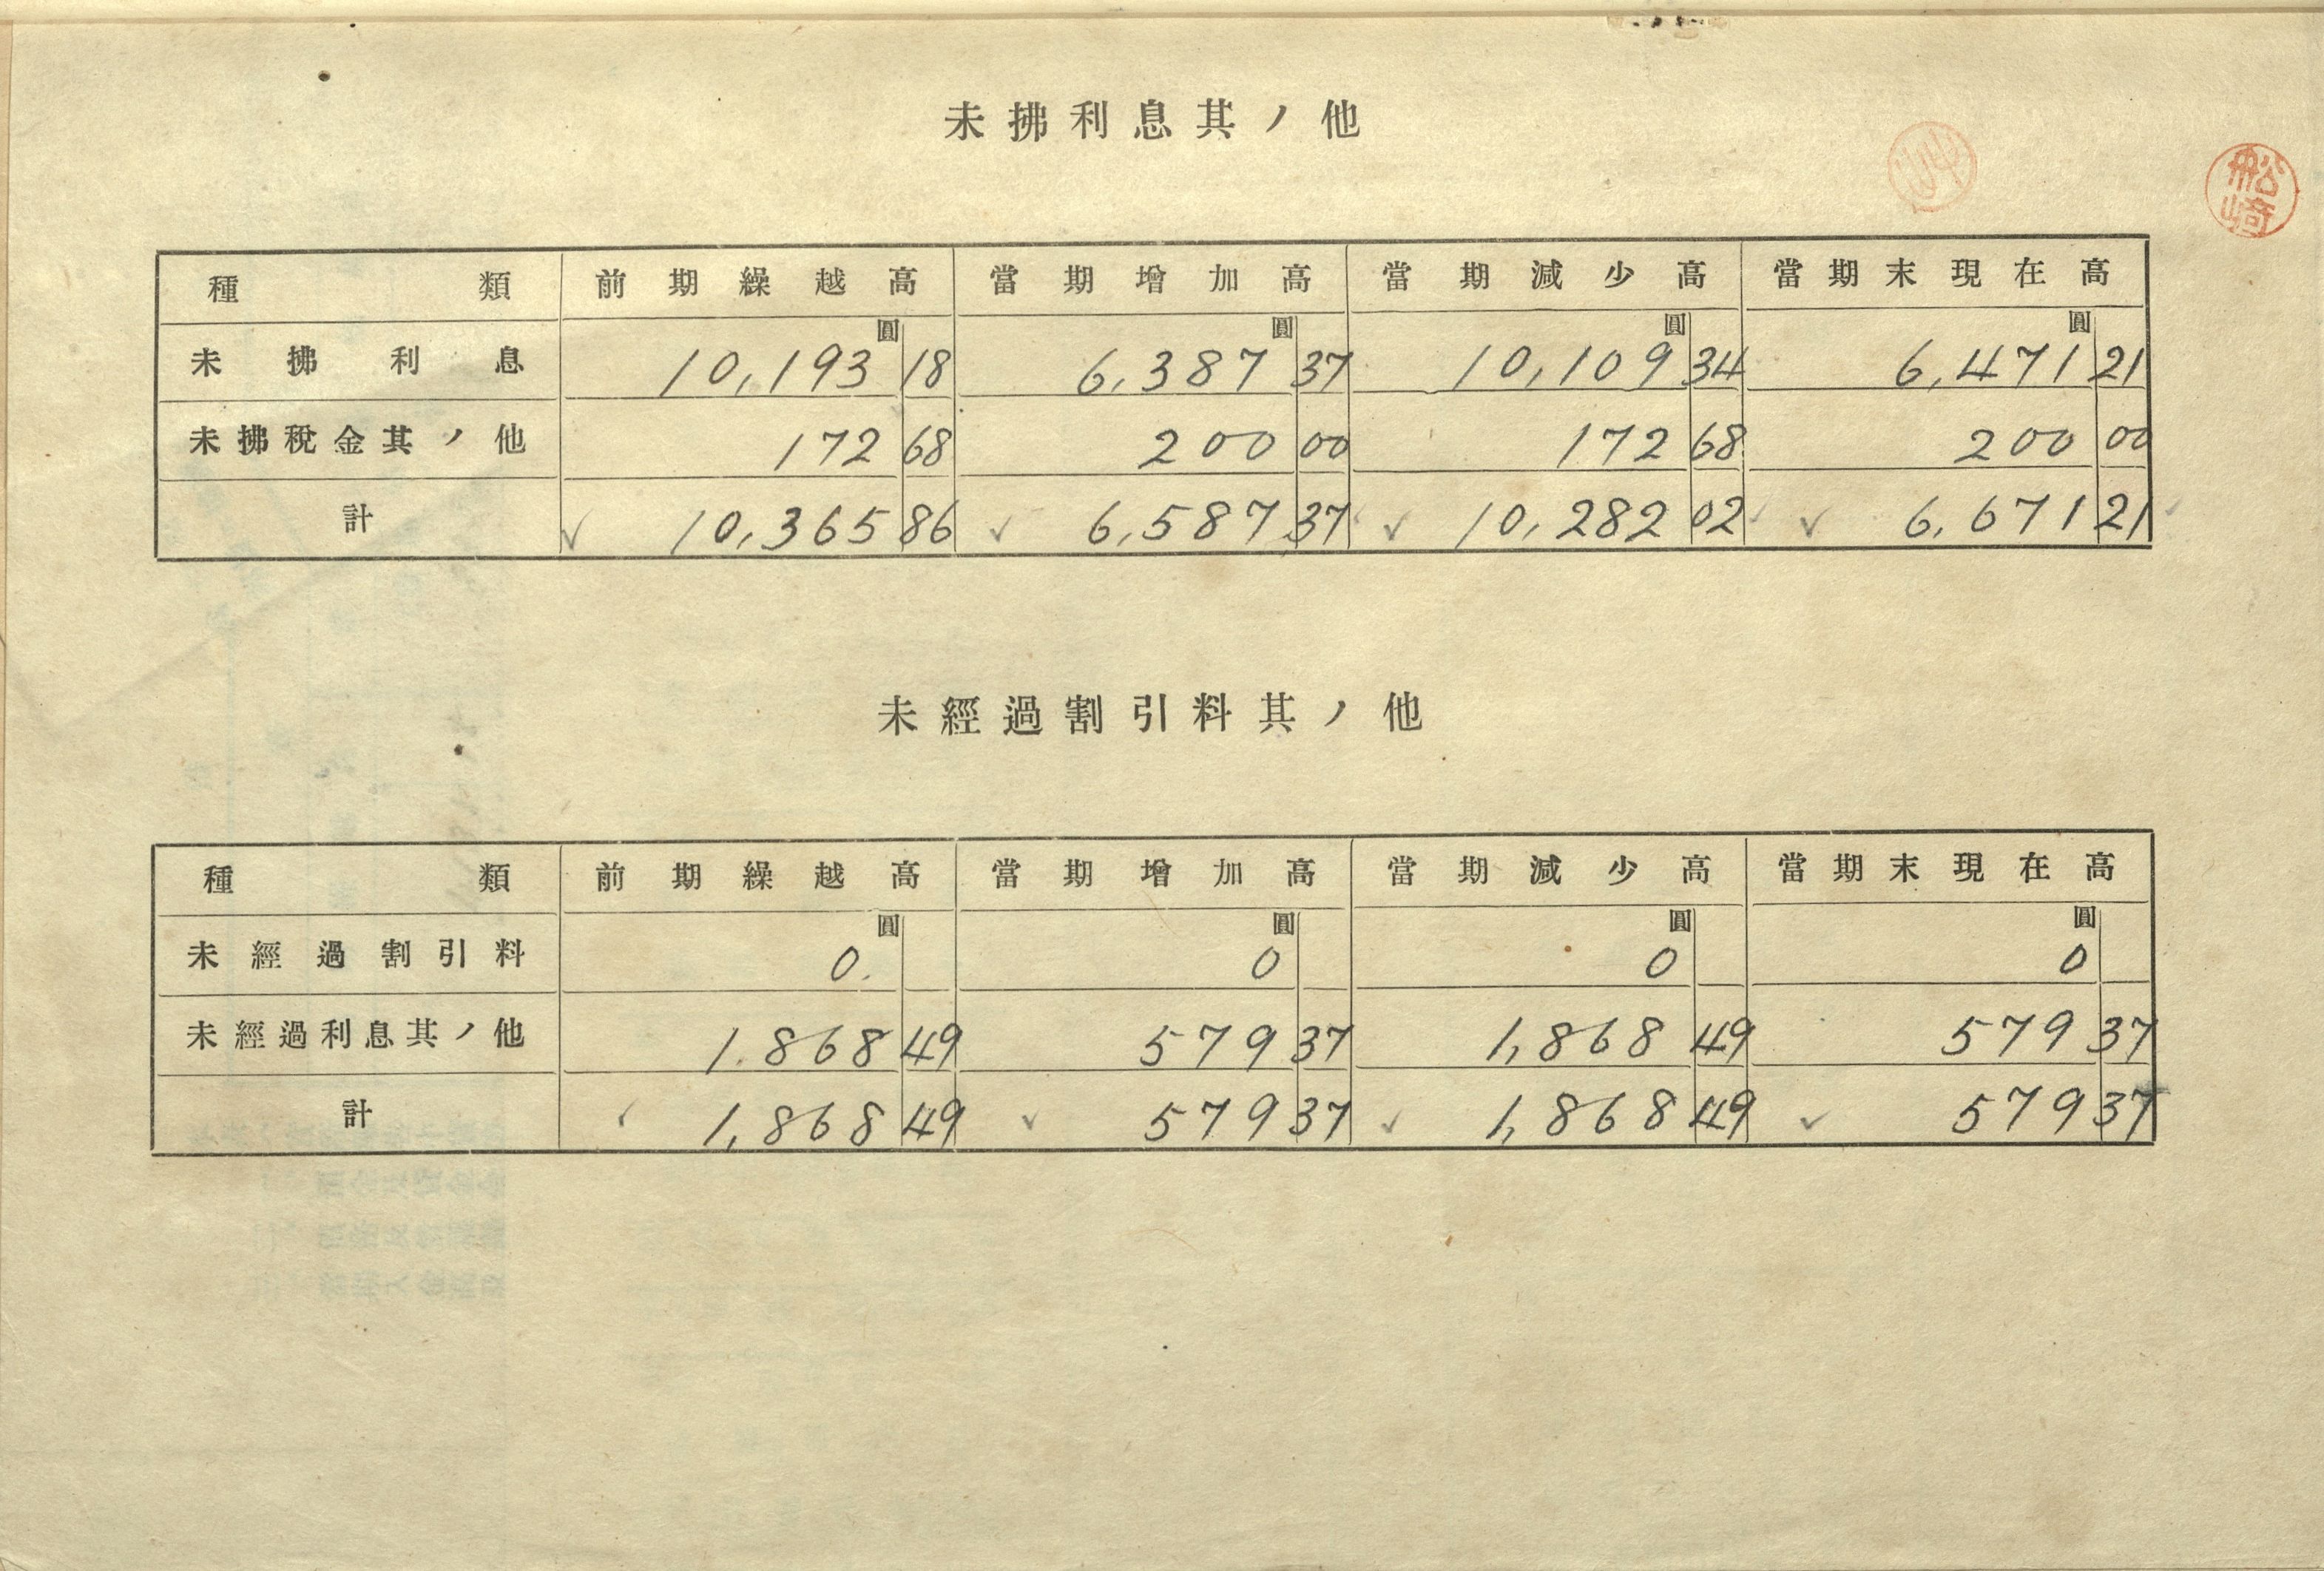 未拂利息其ノ他
船﨑
種類 前期繰越高 當期增加高 當期減少高 當期末現在高
圓 圓 圓 圓
未拂利息 10,193 18 6,387 37 10,109 34 6,471 21
未拂稅金其ノ他 172 68 200 00 172 68 200 00
計 10,365 86 6,587 37 10,282 02 6,671 21
未經過割引料其ノ他
種類 前期繰越高 當期增加高 當期減少高 當期末現在高
圓 圓 圓 圓
未經過割引料 0. 0 0 0
未經過利息其ノ他 1.868 49 579 37 1,868 49 579 37
計 1,868 49 579 37 1,868 49 579 37